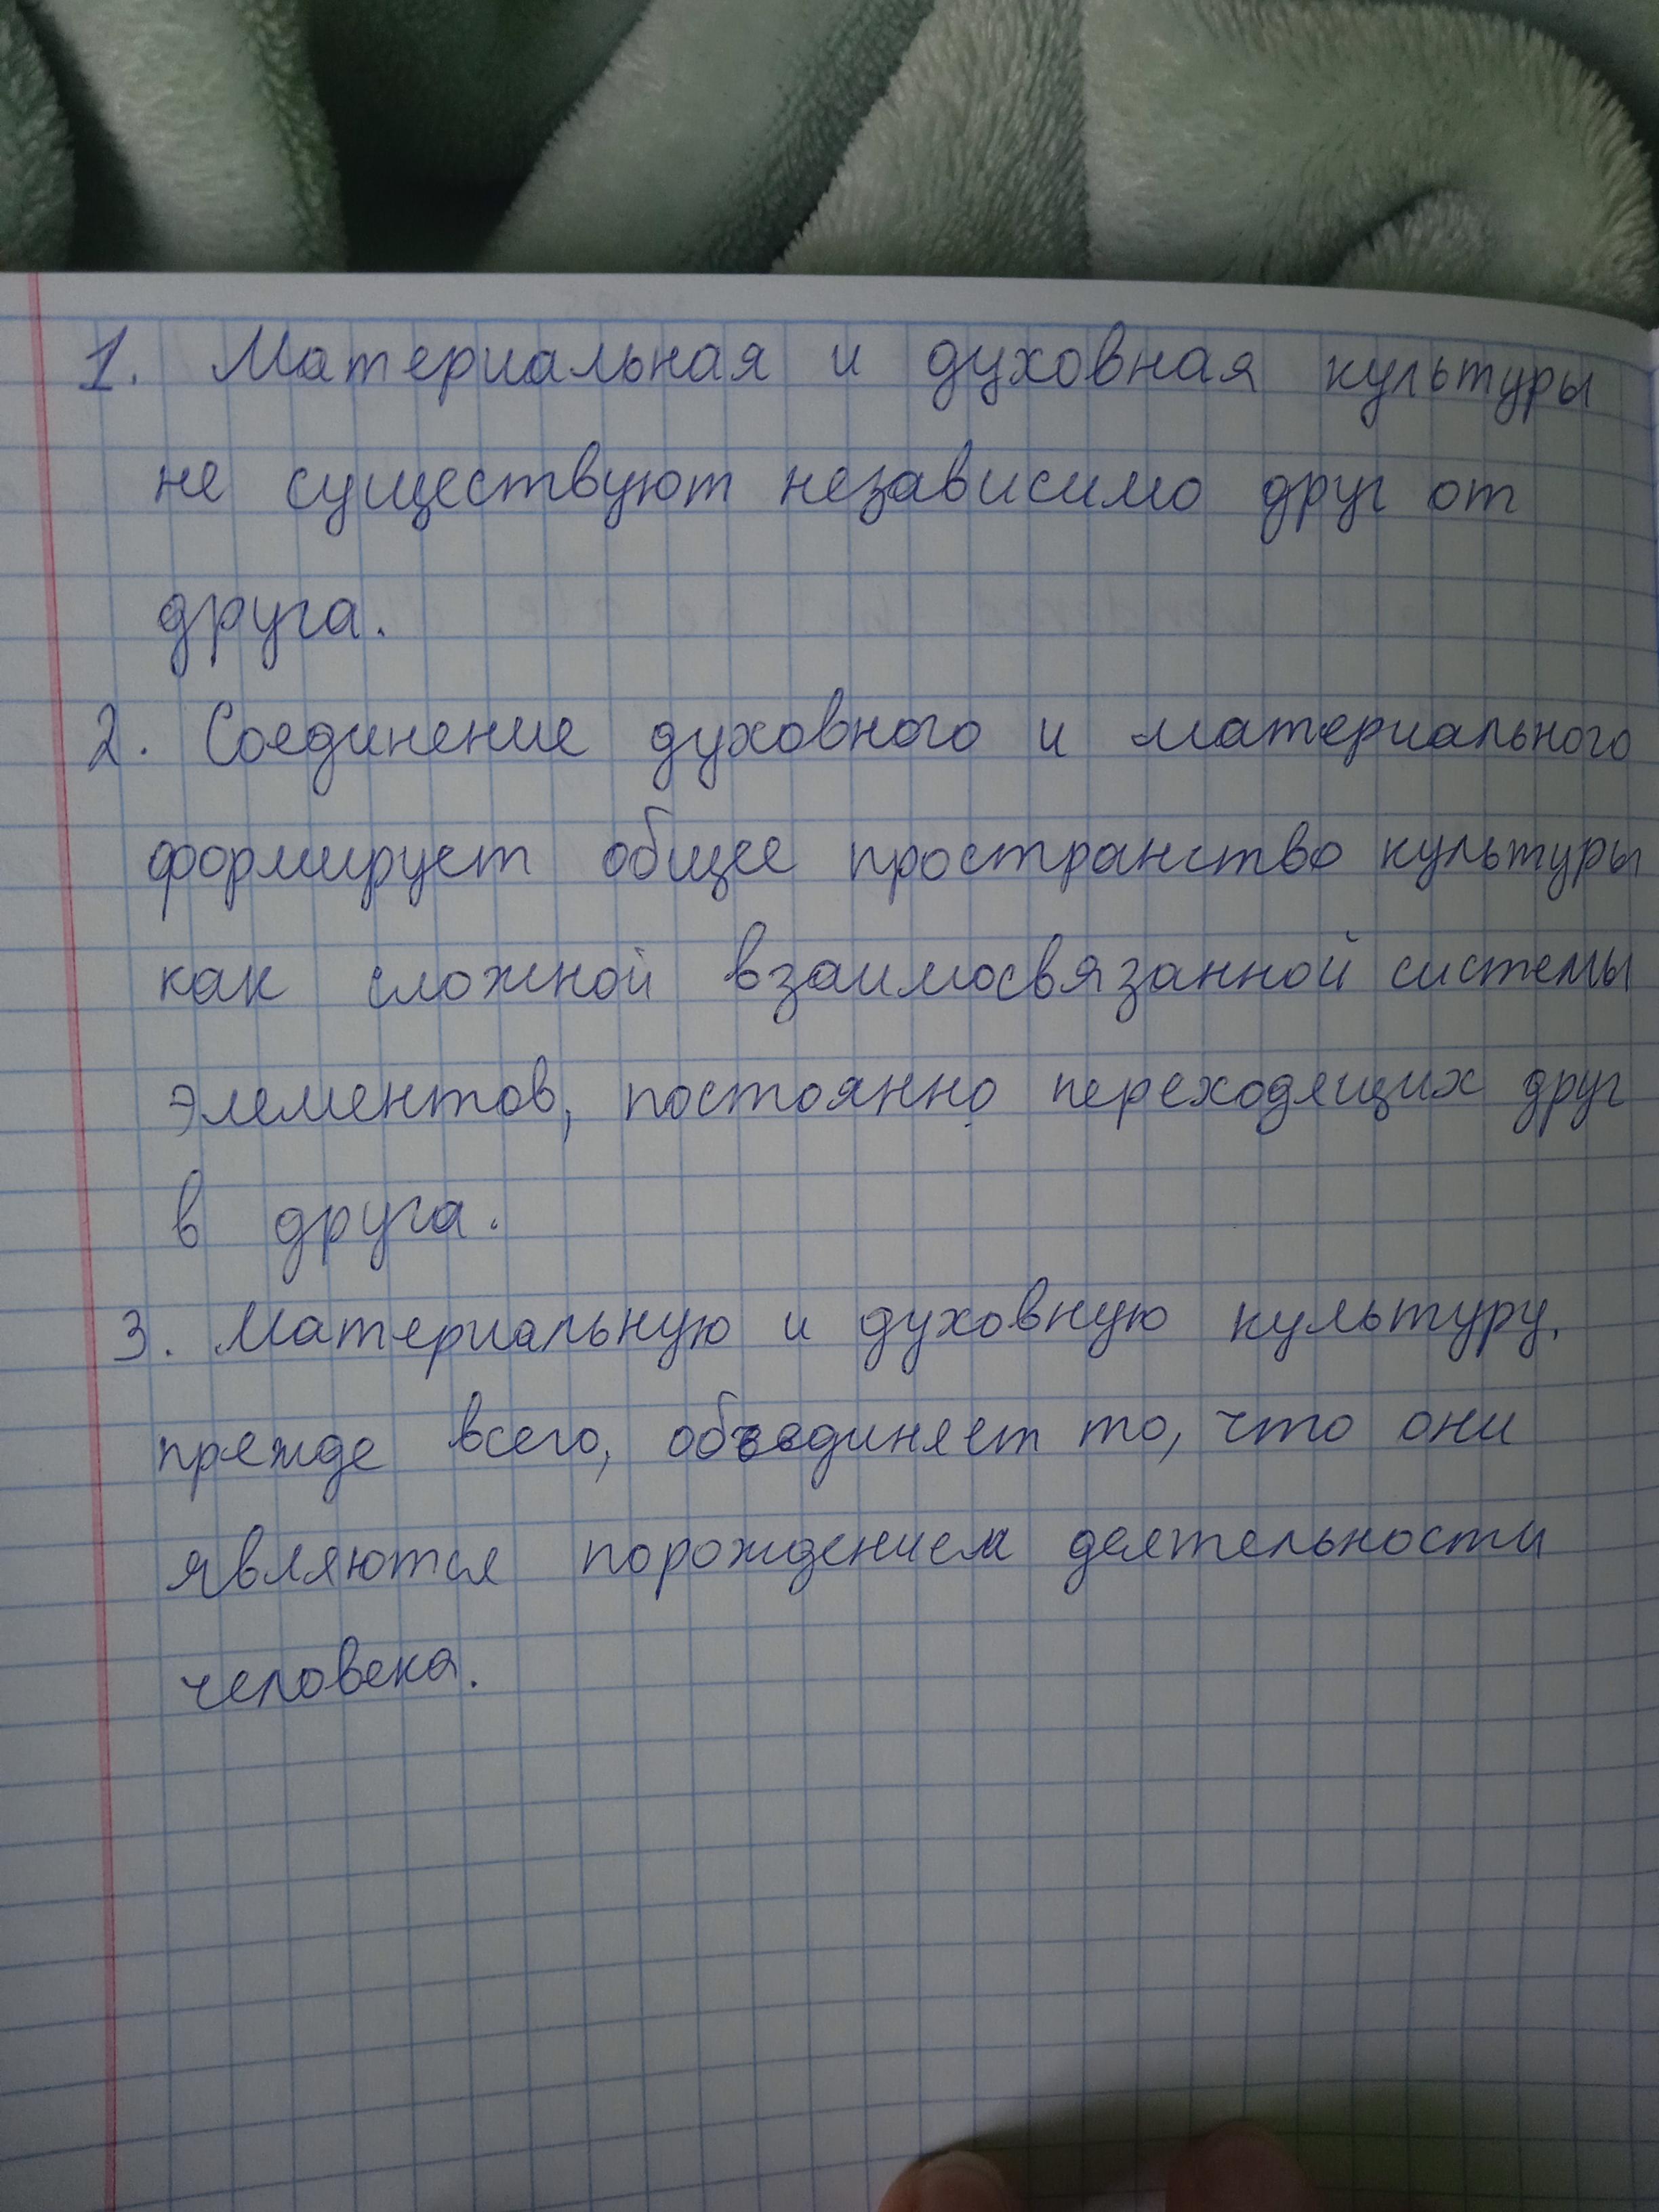 1. Материальная и духовная культуры
не существуют независимо друг от
друга.
2. Соединение духовного и материального
формирует общее пространство культуры
как сложной взаимосвязанной системы
элементов, постоянно переходящих друг
в друга.
3. Материальную и духовную культуру,
прежде всего, объединяет то, что они
являются порождением деятельности
человека.